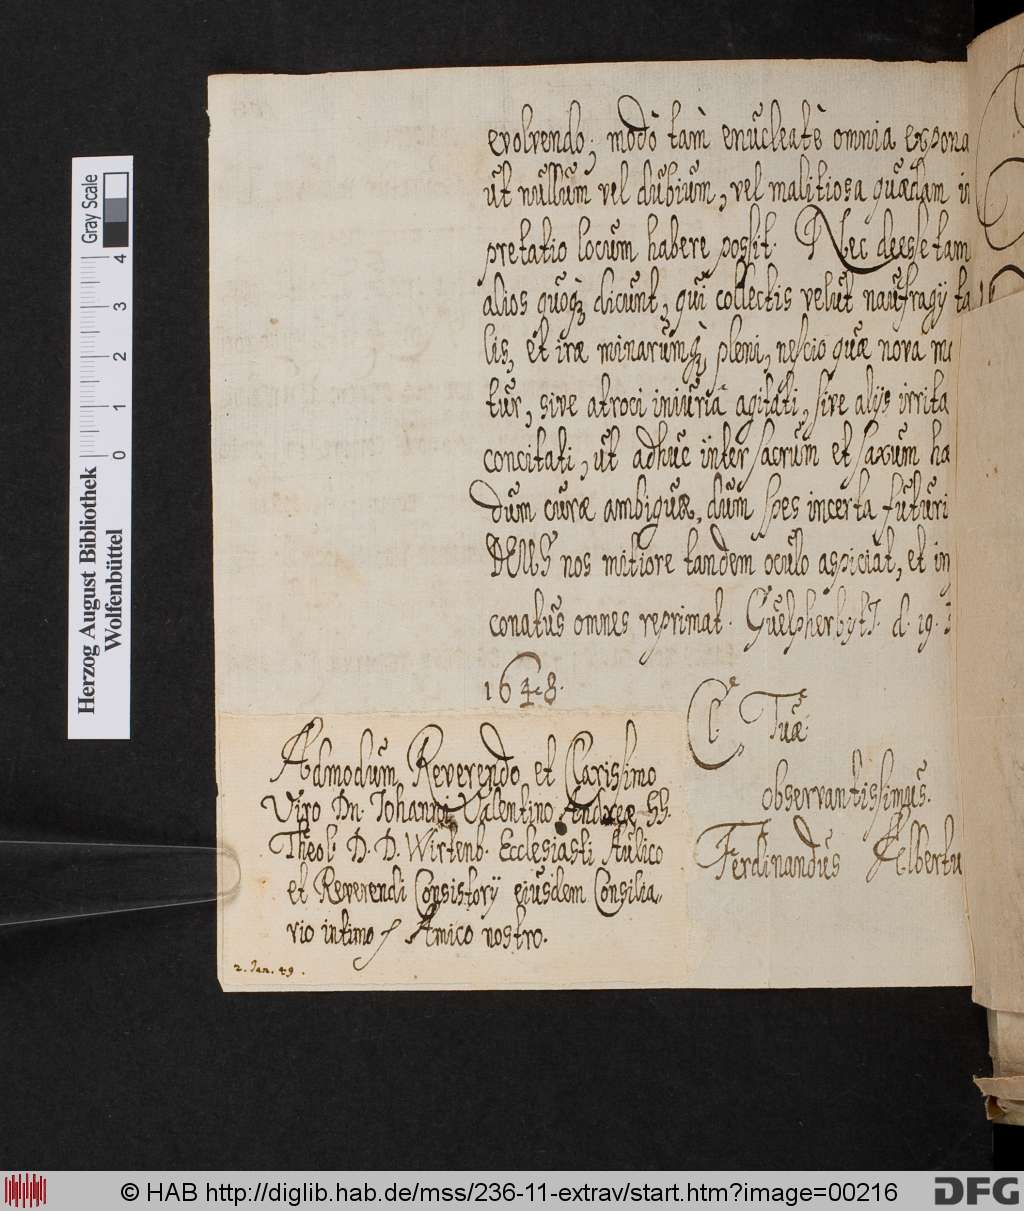 evolvendo; modò tam̀ enucleatè omnia expona
ut nullum vel dubium, vel malitiosa quædam in
pretatio locum habere possit. Nec deesse tam
alios quoqz dicunt, qui collectis velut naufragij ta
lis, et iræ minarumqz pleni, nescio quæ nova m
tur, sive atroci iniuria agitati, sive alijs irrita
concitati, ut adhuc inter sacrum et saxum ha
dum curæ ambiguæ, dum spes incerta futuri
DEUS nos mitiore tandem oculo aspiciat, et in
conatus omnes reprimat. Guelpherbyti. d. 19.
1648.
Cl.e Tuæ.e
observantissimus.
Ferdinandus Albertu
Admodum Reverendo et Clarissimo
Viro Dn. Johanni Valentino Andreæ SS.
Theol. D. D. Wirtenb. Ecclesiasti Aulico
et Reverendi Consistorij eiusdem Consilia-
rio intimo Amico nostro.
2. Jan. 49.
Herzog August Bibliothek
Wolfenbüttel
0 1 2 3 4
Gray Scale
© HAB http://diglib.hab.de/mss/236-11-extrav/start.htm?image=00216
DFG